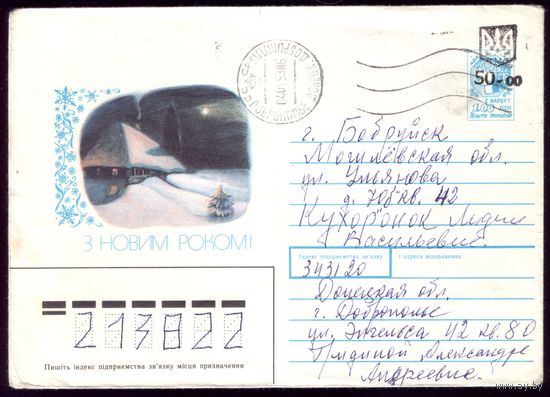 50-00
1.00 КАРБ.
Пошта України
г. Бобруйск
Могилёвская обл.
ул. Ульянова
д. 70б кв. 42
Кухоронок Лидии
Васильевне.
З НОВИМ РОКОМ!
Індекс підприємства зв'язку і адреса відправника
343120
Донецкая обл.
г. Доброполье
ул. Энгельса 42 кв. 80
Александре
Андреевне.
213822
Пишіть індекс підприємства зв'язку місця призначення